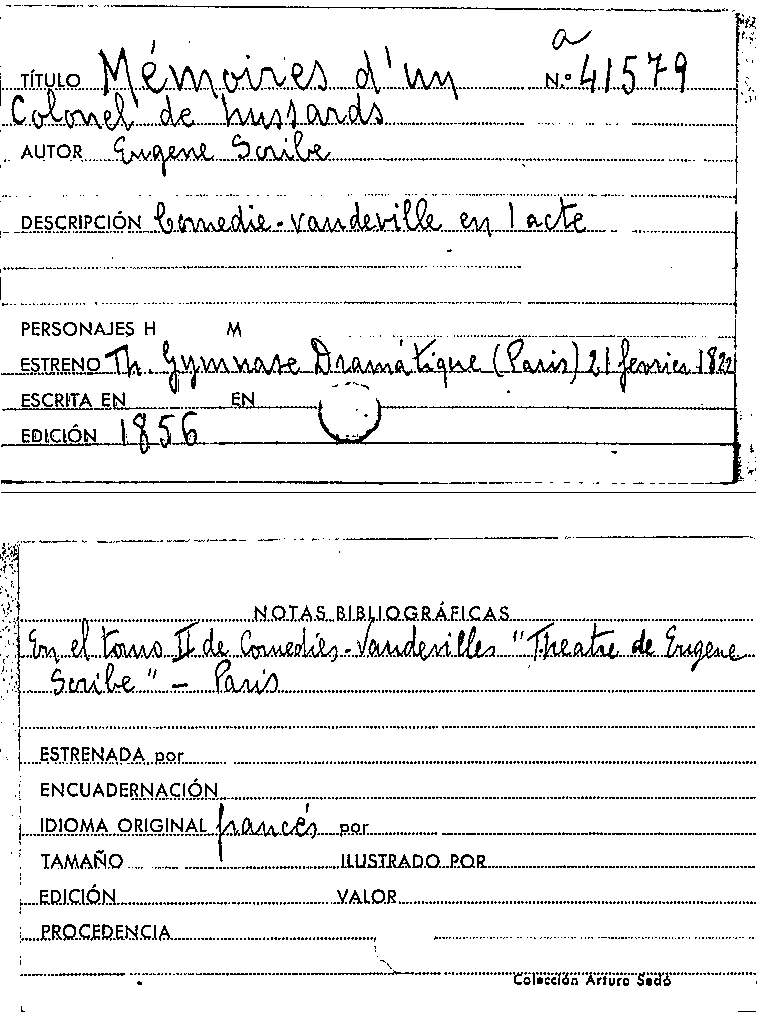 a
TÍTULO Mémoires d'un N.º 41579
Colonel de hussards
AUTOR Eugene Scribe
DESCRIPCIÓN Comedie-vaudeville en 1 acte
PERSONAJES H M
ESTRENO Th. Gymnase Dramátique (Paris) 21 fevrier 1822
ESCRITA EN EN
EDICIÓN 1856
NOTAS BIBLIOGRÁFICAS
En el tomo II de Comedies-Vaudevilles "Theatre de Eugene
Scribe" - Paris
ESTRENADA por
ENCUADERNACIÓN
IDIOMA ORIGINAL francés por
TAMAÑO ILUSTRADO POR
EDICIÓN VALOR
PROCEDENCIA
Colección Arturo Sedó